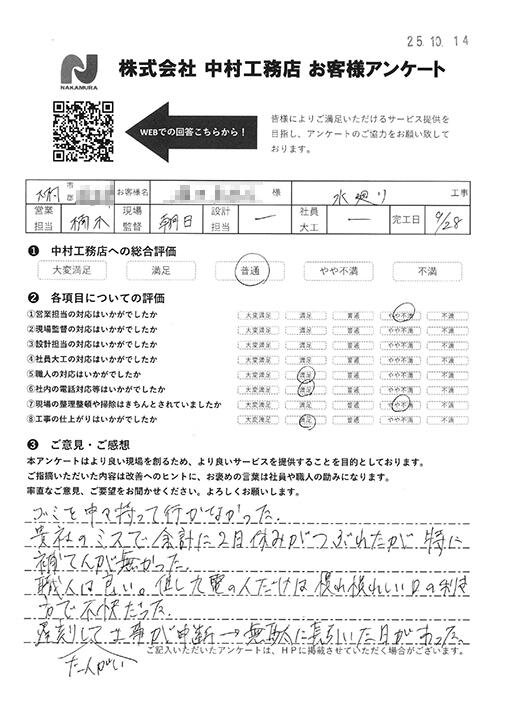 25.10.14
NAKAMURA
株式会社 中村工務店 お客様アンケート
WEBでの回答こちらから！
皆様によりご満足いただけるサービス提供を
目指し、アンケートのご協力をお願い致して
おります。
市 郡 お客様名 様 水廻り 工事
営業担当 楠木 現場監督 朝日 設計担当 ー 社員大工 ー 完工日 9/28
❶ 中村工務店への総合評価
大変満足 満足 普通 やや不満 不満
❷ 各項目についての評価
①営業担当の対応はいかがでしたか 大変満足 満足 普通 やや不満 不満
②現場監督の対応はいかがでしたか 大変満足 満足 普通 やや不満 不満
③設計担当の対応はいかがでしたか 大変満足 満足 普通 やや不満 不満
④社員大工の対応はいかがでしたか 大変満足 満足 普通 やや不満 不満
⑤職人の対応はいかがでしたか 大変満足 満足 普通 やや不満 不満
⑥社内の電話対応等はいかがでしたか 大変満足 満足 普通 やや不満 不満
⑦現場の整理整頓や掃除はきちんとされていましたか 大変満足 満足 普通 やや不満 不満
⑧工事の仕上がりはいかがでしたか 大変満足 満足 普通 やや不満 不満
❸ ご意見・ご感想
本アンケートはより良い現場を創るため、より良いサービスを提供することを目的としております。
ご指摘いただいた内容は改善へのヒントに、お褒めの言葉は社員や職人の励みになります。
率直なご意見、ご要望をお聞かせください。よろしくお願いします。
ゴミを中々持って行かなかった.
貴社のミスで余計に2日休みがつぶれたが特に
補てんが無かった.
職人は良い。但し九電の人だけは慣れ慣れしい口の利き
方で不快だった.
遅刻して工事が中断→無駄に長引いた日があった。
ご記入いただいたアンケートは、HPに掲載させていただく場合がございます。